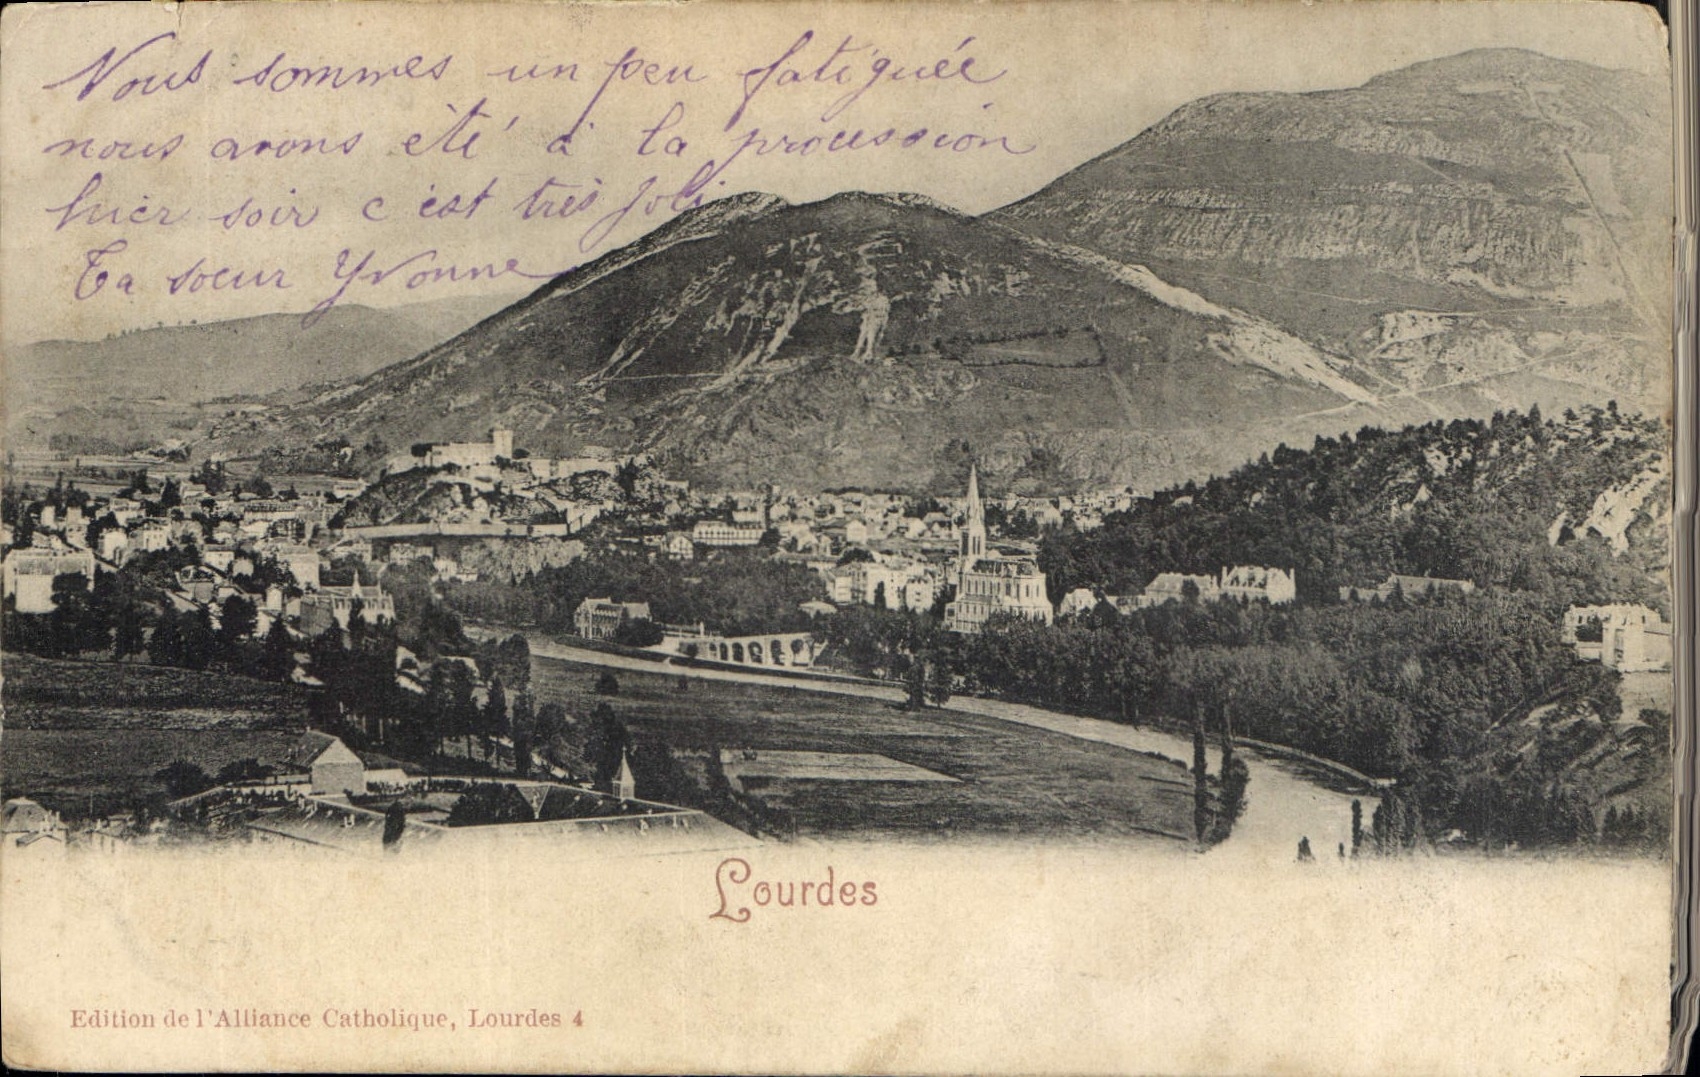 Nous sommes un peu fatiguée
nous avons été à la procession
hier soir c'est très joli
Ta soeur Yvonne
Lourdes
Edition de l'Alliance Catholique, Lourdes 4